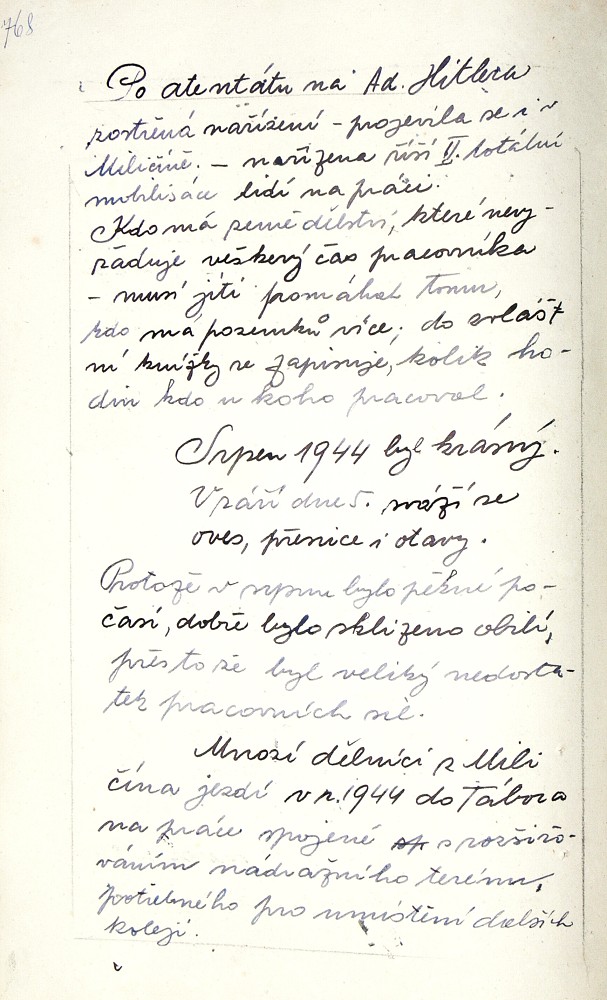 768
Po atentátu na Ad. Hitlera
zostřená nařízení – projevila se i v
Miličíně. – nařízena říší II. totální
mobilisace lidí na práci.
Kdo má zemědělství, které nevy-
žaduje veškerý čas pracovníka
– musí jíti pomáhat tomu,
kdo má pozemků více; do zvlášt
ní knížky se zapisuje, kolik ho-
din kdo u koho pracoval.
Srpen 1944 byl krásný.
V září dne 5. sváží se
oves, pšenice i otavy.
Protože v srpnu bylo pěkné po-
časí, dobře bylo sklizeno obilí,
přesto že byl veliký nedosta-
tek pracovních sil.
Mnozí dělníci z Mili
čína jezdí v r. 1944 do Tábora
na práce spojené s rozšiřo-
váním nádražního terénu,
potřebného pro umístění dalších
kolejí.